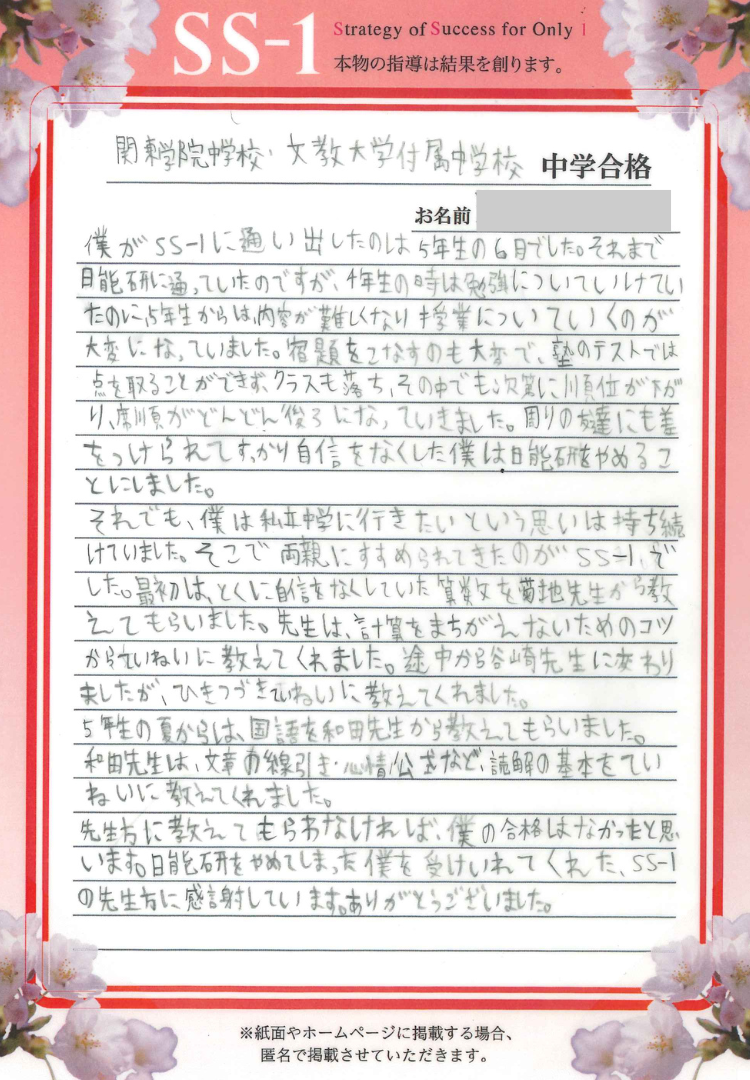 SS-1
Strategy of Success for Only 1
本物の指導は結果を創ります。
関東学院中学校・文教大学付属中学校 中学合格
お名前
僕がSS-1に通い出したのは5年生の6月でした。それまで
日能研に通っていたのですが、4年生の時は勉強についていけてい
たのに、5年生からは、内容が難しくなり授業についていくのが
大変になっていました。宿題をこなすのも大変で、塾のテストでは
点を取ることができず、クラスも落ち、その中でも次第に順位が下が
り、席順がどんどん後ろになっていきました。周りの友達にも差
をつけられてすっかり自信をなくした僕は日能研をやめるこ
とにしました。
それでも、僕は私立中学に行きたいという思いは持ち続
けていました。そこで両親にすすめられてきたのがSS-1で
した。最初は、とくに自信をなくしていた算数を菊地先生から教
えてもらいました。先生は、計算をまちがえないためのコツ
からていねいに教えてくれました。途中から谷崎先生に変わり
ましたが、ひきつづきていねいに教えてくれました。
5年生の夏からは、国語を和田先生から教えてもらいました。
和田先生は、文章の線引き・心情公式など、読解の基本をてい
ねいに教えてくれました。
先生方に教えてもらわなければ、僕の合格はなかったと思
います。日能研をやめてしまった僕を受けいれてくれた、SS-1
の先生方に感謝しています。ありがとうございました。
※紙面やホームページに掲載する場合、
匿名で掲載させていただきます。